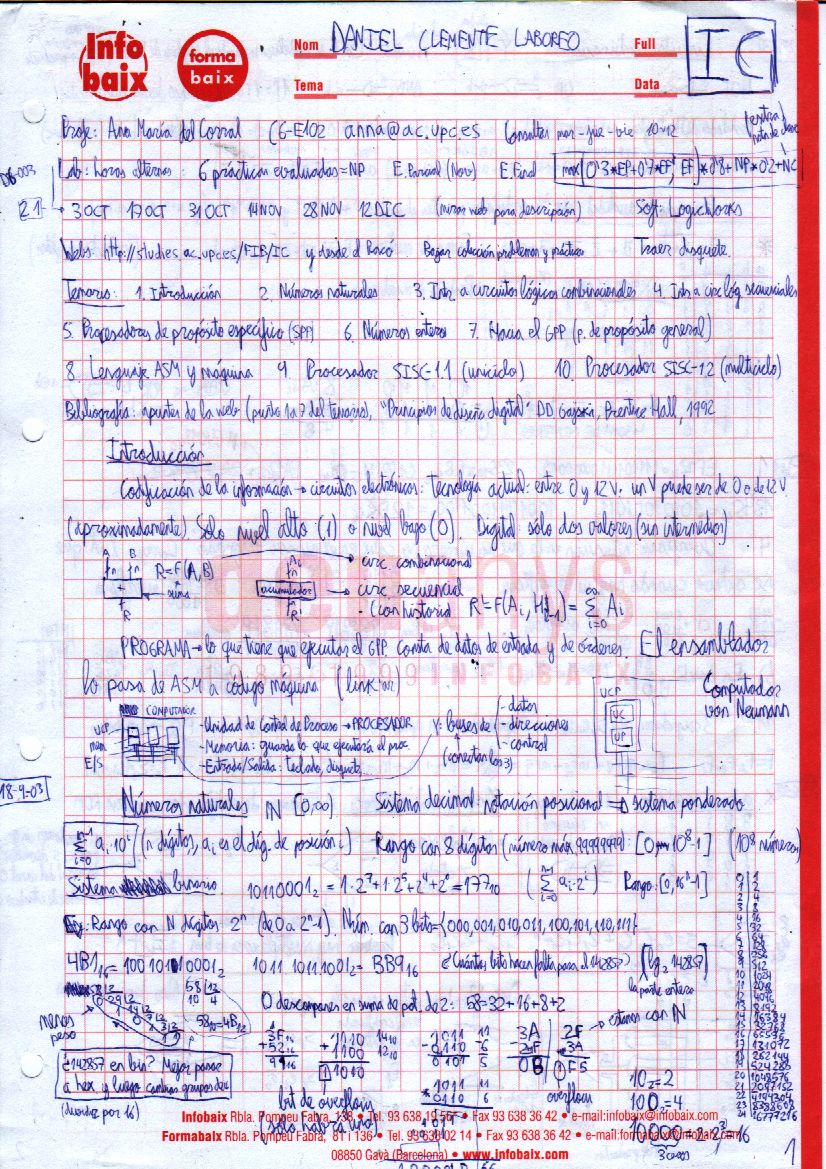 Info baix
forma baix
Nom DANIEL CLEMENTE LABOREO Full
Tema Data
IC
Profe: Ana María del Corral C6-E102 anna@ac.upc.es Consultas mar-jue-vie 10-12
Lab: horas alternas: 6 prácticas evaluadas=NP E.Parcial (Nov) E.Final max(0'3*EP+0'7*EF, EF)*0'8+NP*0'2+NC
D6-003
21
→ 3 OCT 17 OCT 31 OCT 14 NOV 28 NOV 12 DIC (mirar web para descripción) Soft: LogicWorks
Web: http://studies.ac.upc.es/FIB/IC y desde el Racó Bajar colección problemas y prácticas Traer disquete.
Temario: 1. Introducción 2. Números naturales 3. Intr. a circuitos lógicos combinacionales 4. Intr a circ lóg secuenciales
5. Procesadores de propósito específico (SPP) 6. Números enteros 7. Hacia el GPP (p. de propósito general)
8. Lenguaje ASM y máquina 9 Procesador SISC-1.1 (uniciclo) 10. Procesador SISC-1.2 (multiciclo)
Bibliografía: apuntes de la web (punto 1 a 7 del temario), "Principios de diseño digital" DD Gajski, Prentice Hall, 1992
Introducción
Codificación de la información → circuitos electrónicos: Tecnología actual: entre 0 y 12 V. un V puede ser de 0 o de 12 V
(aproximadamente) Sólo nivel alto (1) o nivel bajo (0). Digital sólo dos valores (sin intermedios)
A B
n n
+
n
R
R=F(A,B)
suma
→ circ. combinacional
Ai
n
acumulador
n
R
→ circ. secuencial
- (con historia)
PROGRAMA → lo que tiene que ejecutar el GPP. consta de datos de entrada y de órdenes. El ensamblador
lo pasa de ASM a código máquina (link'ar)
COMPUTADOR
UCP
mem
E/S
-Unidad de Control de Proceso → PROCESADOR
-Memoria: guarda lo que ejecutará el proc.
-Entrada/Salida: teclado, disquete...
y: buses de
- datos
- direcciones
- control
(conectan los 3)
UCP
UC
UP
Computador
von Neumann
18-9-03
Números naturales ℕ [0,∞) Sistema decimal: notación posicional ⇒ sistema ponderado
Σ aᵢ·10ⁱ (n dígitos, aᵢ es el díg. de posición i) Rango con 8 dígitos (número máx. 99999999): [0, 10⁸-1] (10⁸ números)
Sistema binario 10110001₂ = 1·2⁷+1·2⁵+2⁴+2⁰=177₁₀ (Σ aᵢ·2ⁱ)
Ej: Rango con N dígitos 2ⁿ (de 0 a 2ⁿ-1). Núm. con 3 bits={000,001,010,011,100,101,110,111}
4B1₁₆= 1011 1011 1001₂= BB9₁₆ ¿Cuántos bits hacen falta para el 142857?
la parte entera
menos
peso
58 12
10 4
58₁₀=4B₁₂
O descomponer en suma de pot. de 2: 58=32+16+8+2
→ estamos con ℕ
3F₁₆
+52₁₆
1110 14₁₀
+1100 12₁₀
11010
1011 11
-0110 -6
0101 5
2F
-3A
1F5
overflow
¿142857 en bin? Mejor pasar
a hex y luego
(dividir por 16)
bit de overflow
(sólo habrá uno)
1011 11
*0110 6
10₂=2
100₂=4
3 ceros
0 1
1 2
2 4
3 8
4 16
5 32
6 64
7 128
8 256
9 512
10 1024
11 2048
12 4096
13 8192
14 16384
15 32768
16 65536
17 131072
18 262144
19 524288
20 1048576
21 2097152
22 4194304
23 8388608
24 16777216
Infobaix Rbla. Pompeu Fabra, 138 • Tel. 93 638 19 56 • Fax 93 638 36 42 • e-mail:infobaix@infobaix.com
Formabaix Rbla. Pompeu Fabra, 81 i 136 • Tel. 93 638 02 14 • Fax 93 638 36 42 • e-mail:formabaix@infobaix.com
08850 Gavà (Barcelona) • www.infobaix.com
1